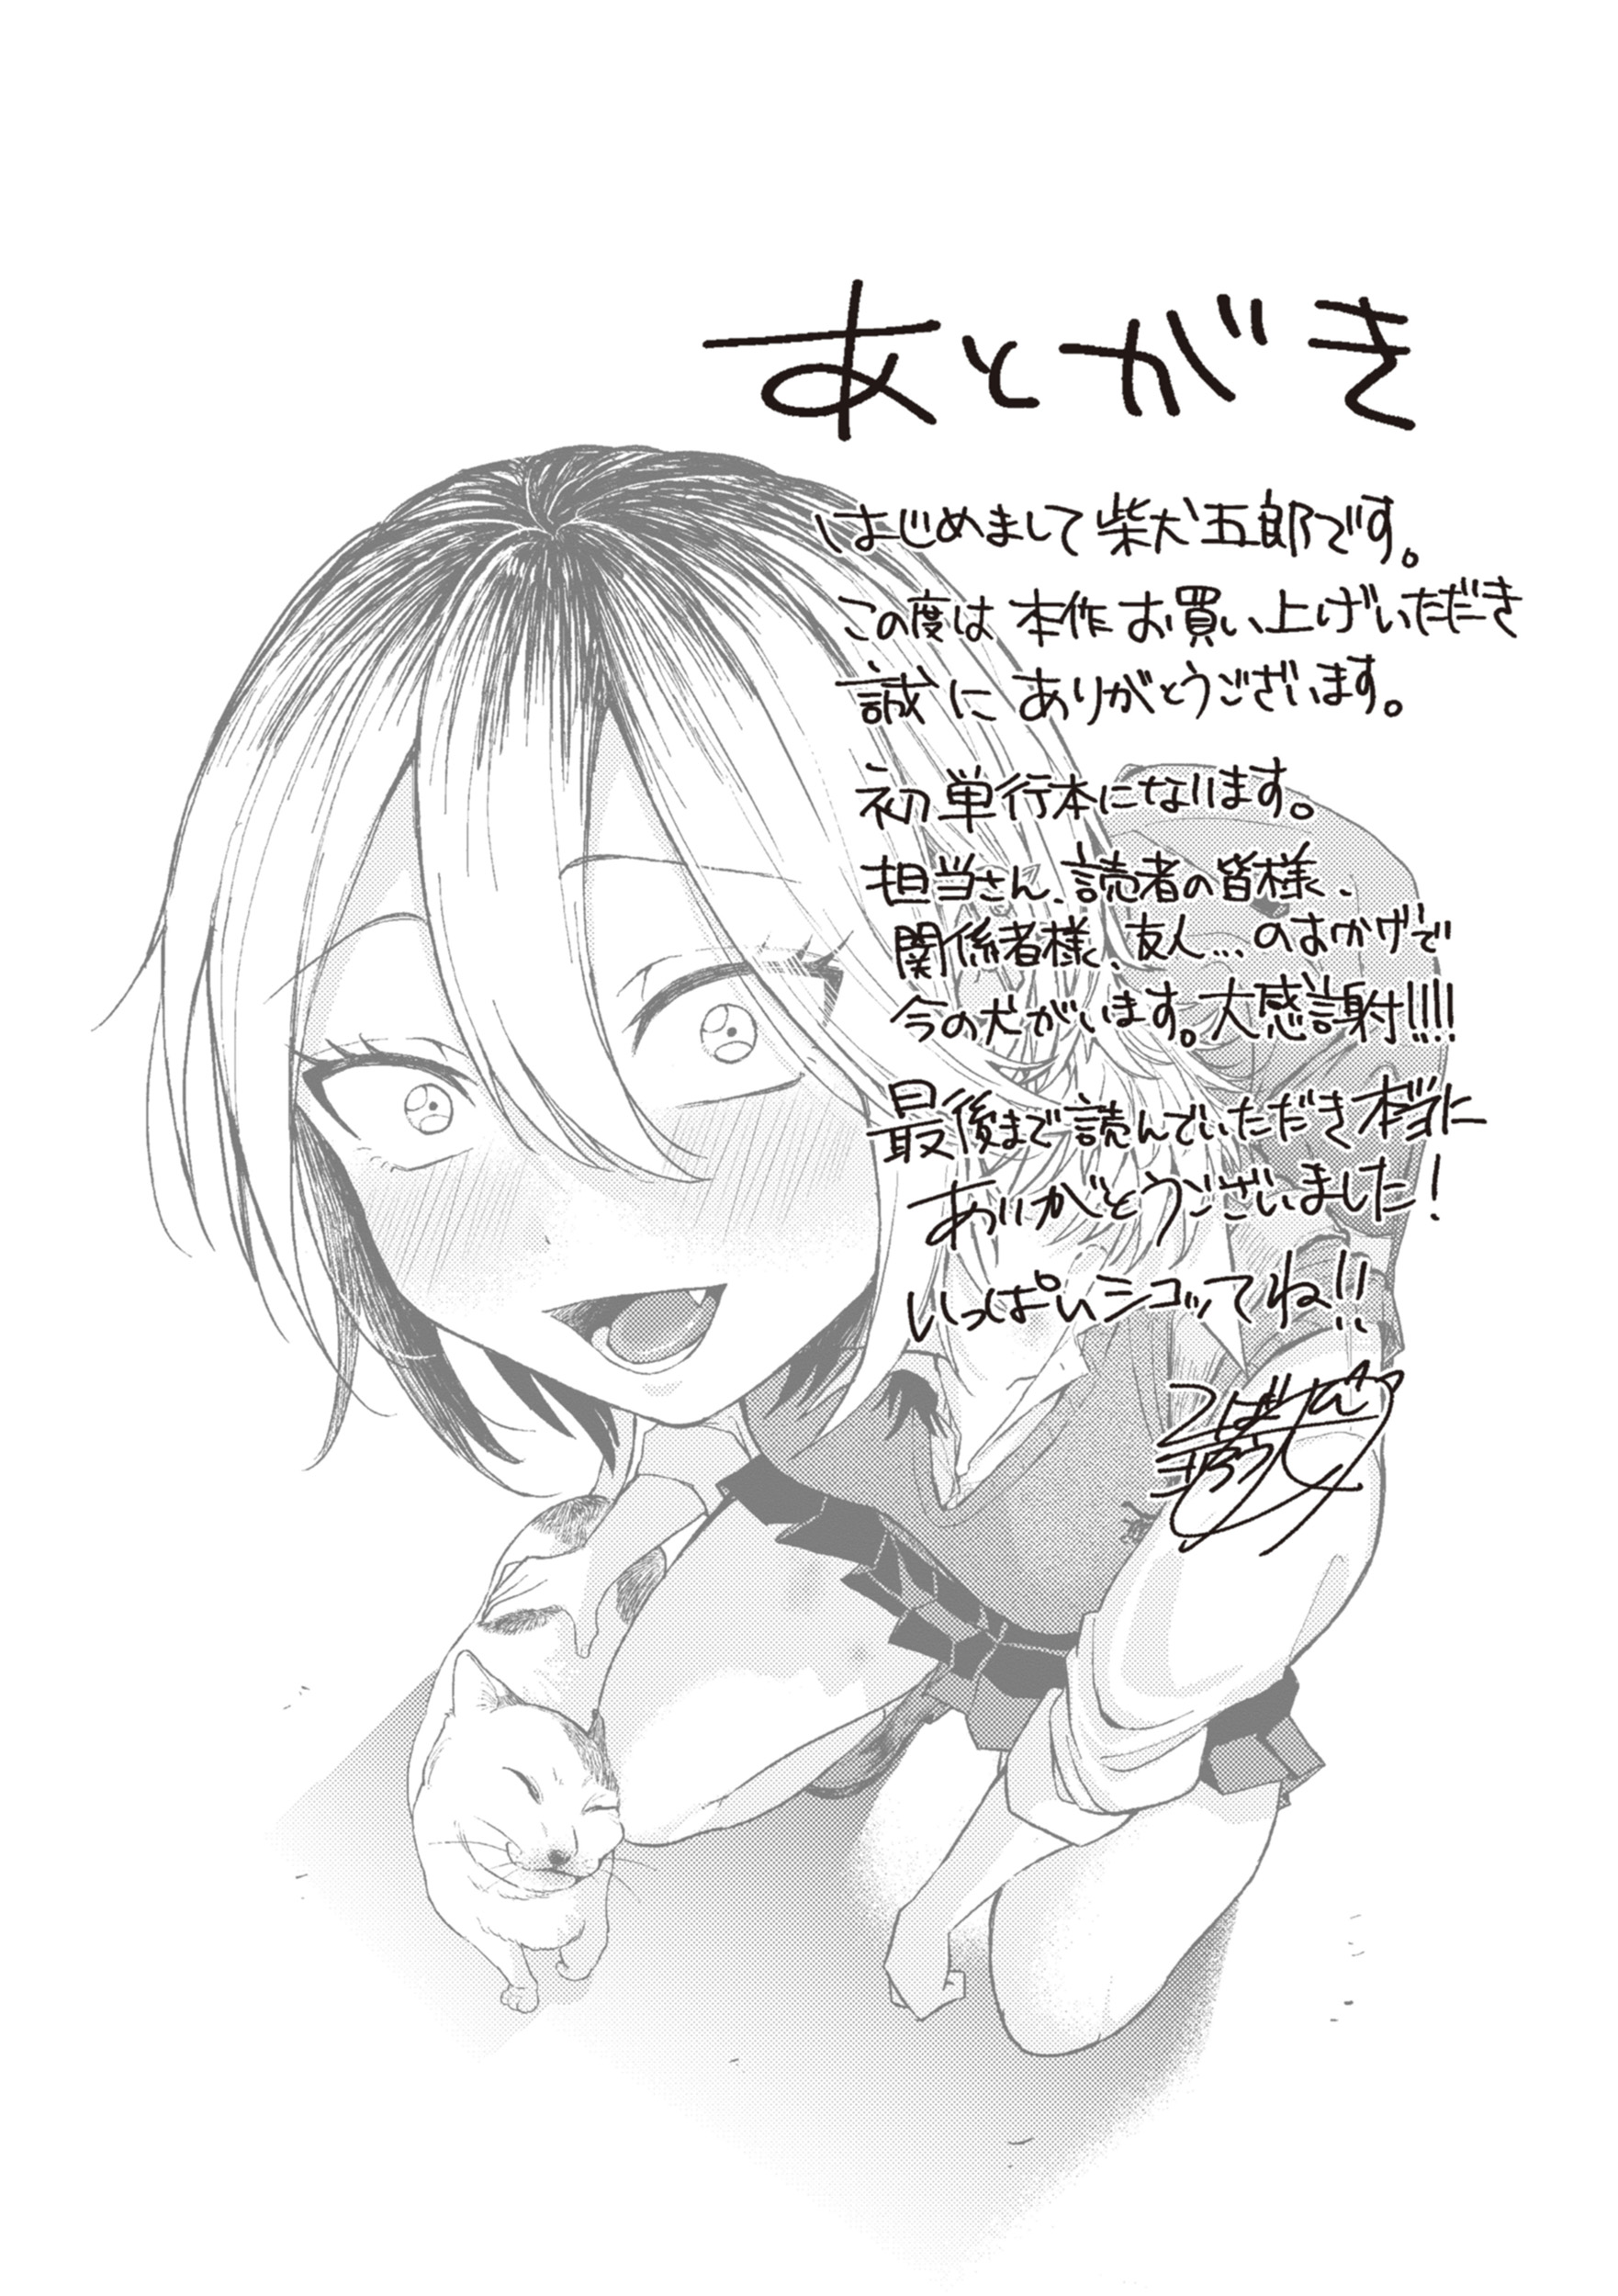 あとがき
はじめまして柴犬五郎です。
この度は 本作 お買い上げいただき
誠に ありがとうございます。
初単行本になります。
担当さん、読者の皆様、
関係者様、友人…のおかげで
今の犬がいます。大感謝!!!!
最後まで読んでいただき本当に
ありがとうございました!
いっぱいシコッてね!!